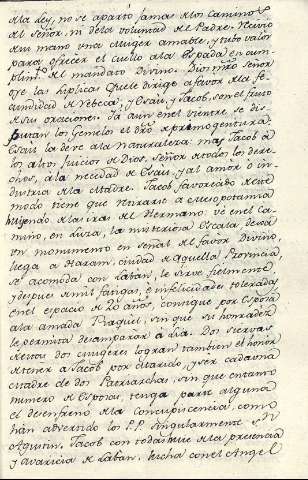 a la Ley, no se apartó jamas de los caminos
del Señor, ni de la voluntad del Padre. Recivio
de su mano una muger amable, y tubo valor
para ofrecer el cuello a la espada en cum-
plimto. del mandato Divino. Dios nro Señor
oye las suplicas que le dirige a favor de la fe-
cundidad de Rebeca; y Esaú, y Jacob, son el fruto
de su oracion. Ya aun en el vientre se dis-
putan los Gemelos el dro de primogenitura.
Esaú la deve a la Naturaleza: mas Jacob a
los altos Juicios de Dios, Señor de todos los dere-
chos, a la necedad de Esaú, y al amor é in-
dustria de la Madre. Jacob favorecido de este
modo tiene que retirarse a Mesopotamia
huyendo de las iras del Hermano: vé en el ca-
mino, en Luza, la misteriosa Escala,
un monumento en señal del favor Divino,
llega a Haram, ciudad de aquella Provincia,
se acomoda con Laban, le sirve fielmente,
y despues de mil fatigas, é infelicidades toleradas
en el espacio de 20 años, consigue por Esposa
a la amada Raquel, sin que su honradez
le permita desamparar á Lia. Dos siervas
de estas dos mugeres logran tambien el honor
de tener a Jacob por marido, y ser cada una
Madre de dos Patriarchas, sin que en tanto
numero de Esposas, tenga parte alguna
el desenfreno de la concupiscencia, como
han advertido los P.P. singularmente Sn
Agustin. Jacob con todo huie de la presencia
y avaricia de Laban, lucha con el Angel